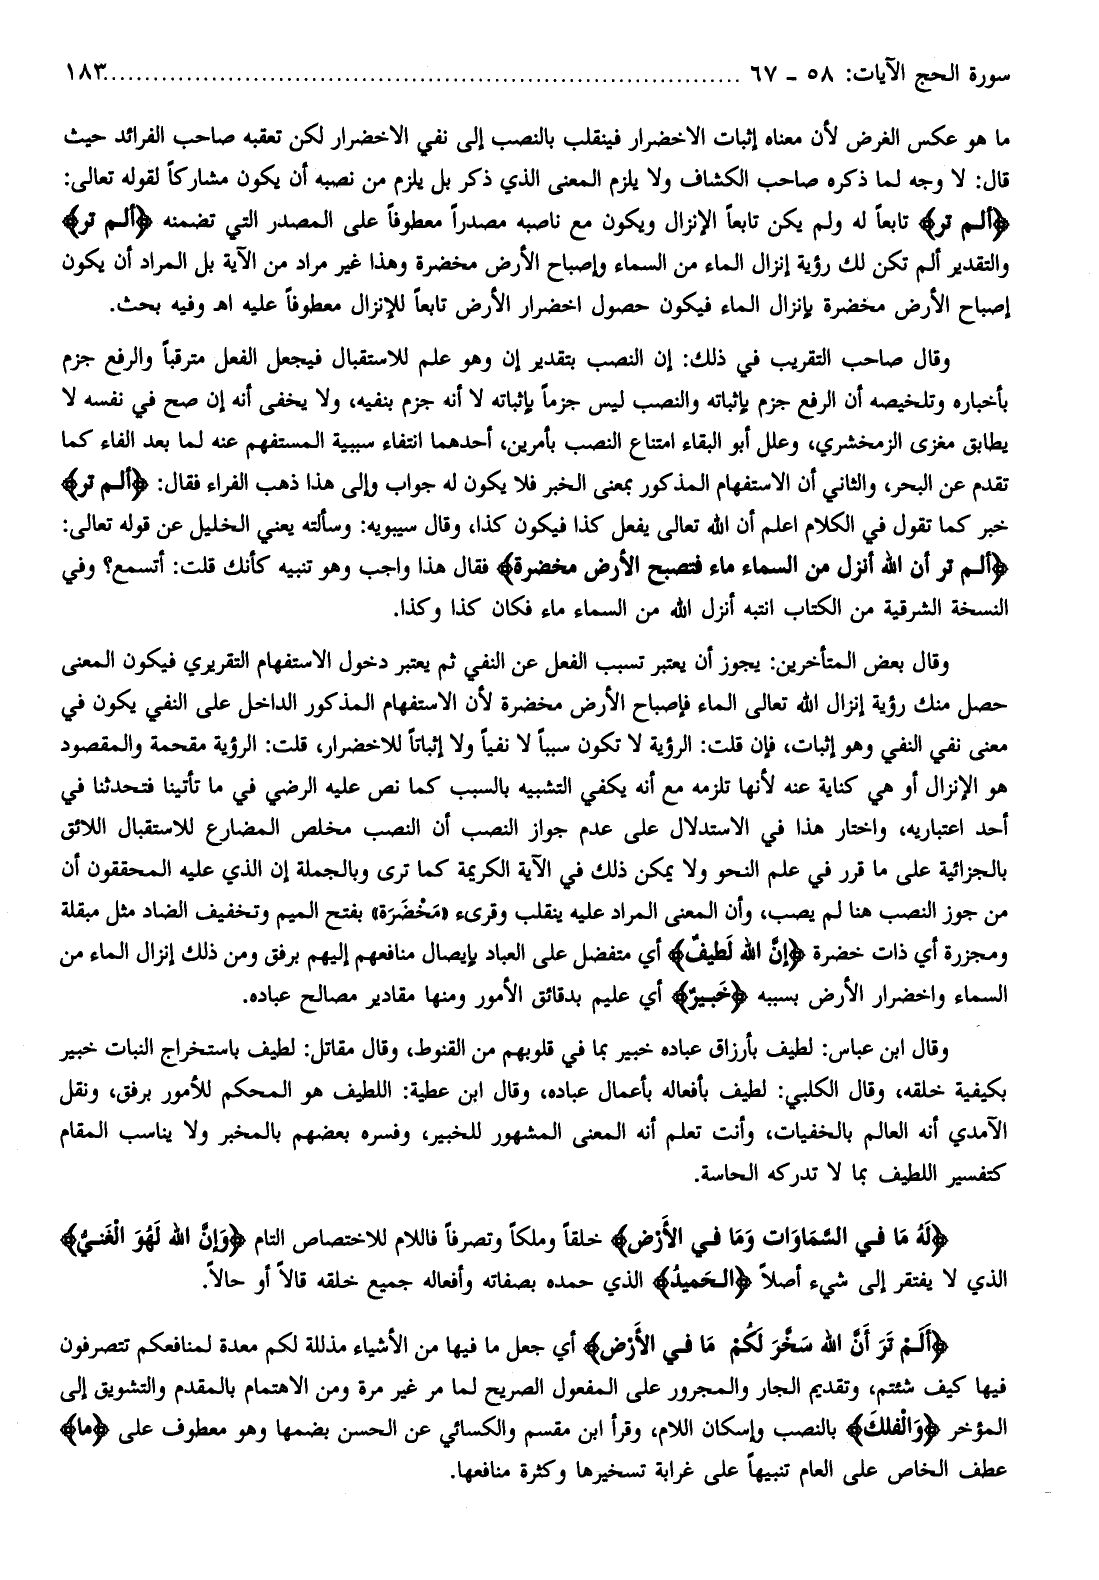 سورة الحج الآيات: ٥٨ - ٦٧ ........................................................................... ١٨٣
ما هو عكس الغرض لأن معناه إثبات الاخضرار فينقلب بالنصب إلى نفي الاخضرار لكن تعقبه صاحب الفرائد حيث
قال: لا وجه لما ذكره صاحب الكشاف ولا يلزم المعنى الذي ذكر بل يلزم من نصبه أن يكون مشاركاً لقوله تعالى:
﴿ألم تر﴾ تابعاً له ولم يكن تابعاً الإنزال ويكون مع ناصبه مصدراً معطوفاً على المصدر التي تضمنه ﴿ألم تر﴾
والتقدير ألم تكن لك رؤية إنزال الماء من السماء وإصباح الأرض مخضرة وهذا غير مراد من الآية بل المراد أن يكون
إصباح الأرض مخضرة بإنزال الماء فيكون حصول اخضرار الأرض تابعاً للإنزال معطوفاً عليه اهـ وفيه بحث.
وقال صاحب التقريب في ذلك: إن النصب بتقدير إن وهو علم للاستقبال فيجعل الفعل مترقباً والرفع جزم
بأخباره وتلخيصه أن الرفع جزم بإثباته والنصب ليس جزماً بإثباته لا أنه جزم بنفيه، ولا يخفى أنه إن صح في نفسه لا
يطابق مغزى الزمخشري، وعلل أبو البقاء امتناع النصب بأمرين، أحدهما انتفاء سببية المستفهم عنه لما بعد الفاء كما
تقدم عن البحر، والثاني أن الاستفهام المذكور بمعنى الخبر فلا يكون له جواب وإلى هذا ذهب الفراء فقال: ﴿ألم تر﴾
خبر كما تقول في الكلام اعلم أن الله تعالى يفعل كذا فيكون كذا، وقال سيبويه: وسألته يعني الخليل عن قوله تعالى:
﴿ألم تر أن الله أنزل من السماء ماء فتصبح الأرض مخضرة﴾ فقال هذا واجب وهو تنبيه كأنك قلت: أتسمع؟ وفي
النسخة الشرقية من الكتاب انتبه أنزل الله من السماء ماء فكان كذا وكذا.
وقال بعض المتأخرين: يجوز أن يعتبر تسبب الفعل عن النفي ثم يعتبر دخول الاستفهام التقريري فيكون المعنى
حصل منك رؤية إنزال الله تعالى الماء فإصباح الأرض مخضرة لأن الاستفهام المذكور الداخل على النفي يكون في
معنى نفي النفي وهو إثبات، فإن قلت: الرؤية لا تكون سبباً لا نفياً ولا إثباتاً للاخضرار، قلت: الرؤية مقحمة والمقصود
هو الإنزال أو هي كناية عنه لأنها تلزمه مع أنه يكفي التشبيه بالسبب كما نص عليه الرضي في ما تأتينا فتحدثنا في
أحد اعتباريه، واختار هذا في الاستدلال على عدم جواز النصب أن النصب مخلص المضارع للاستقبال اللائق
بالجزائية على ما قرر في علم النحو ولا يمكن ذلك في الآية الكريمة كما ترى وبالجملة إن الذي عليه المحققون أن
من جوز النصب هنا لم يصب، وأن المعنى المراد عليه ينقلب وقرىء «مَخْضَرَة» بفتح الميم وتخفيف الضاد مثل مبقلة
ومجزرة أي ذات خضرة ﴿إنَّ الله لَطيفٌ﴾ أي متفضل على العباد بإيصال منافعهم إليهم برفق ومن ذلك إنزال الماء من
السماء واخضرار الأرض بسببه ﴿خَبيرٌ﴾ أي عليم بدقائق الأمور ومنها مقادير مصالح عباده.
وقال ابن عباس: لطيف بأرزاق عباده خبير بما في قلوبهم من القنوط، وقال مقاتل: لطيف باستخراج النبات خبير
بكيفية خلقه، وقال الكلبي: لطيف بأفعاله بأعمال عباده، وقال ابن عطية: اللطيف هو المحكم للأمور برفق، ونقل
الآمدي أنه العالم بالخفيات، وأنت تعلم أنه المعنى المشهور للخبير، وفسره بعضهم بالمخبر ولا يناسب المقام
كتفسير اللطيف بما لا تدركه الحاسة.
﴿لَهُ مَا في السَّمَاوَات وَمَا في الأَرْض﴾ خلقاً وملكاً وتصرفاً فاللام للاختصاص التام ﴿وَإنَّ الله لَهُوَ الْغَنيُّ﴾
الذي لا يفتقر إلى شيء أصلاً ﴿الحَميدُ﴾ الذي حمده بصفاته وأفعاله جميع خلقه قالاً أو حالاً.
﴿أَلَمْ تَرَ أَنَّ الله سَخَّرَ لَكُمْ مَا في الأَرْض﴾ أي جعل ما فيها من الأشياء مذللة لكم معدة لمنافعكم تتصرفون
فيها كيف شئتم، وتقديم الجار والمجرور على المفعول الصريح لما مر غير مرة ومن الاهتمام بالمقدم والتشويق إلى
المؤخر ﴿وَالْفلكَ﴾ بالنصب وإسكان اللام، وقرأ ابن مقسم والكسائي عن الحسن بضمها وهو معطوف على ﴿ما﴾
عطف الخاص على العام تنبيهاً على غرابة تسخيرها وكثرة منافعها.